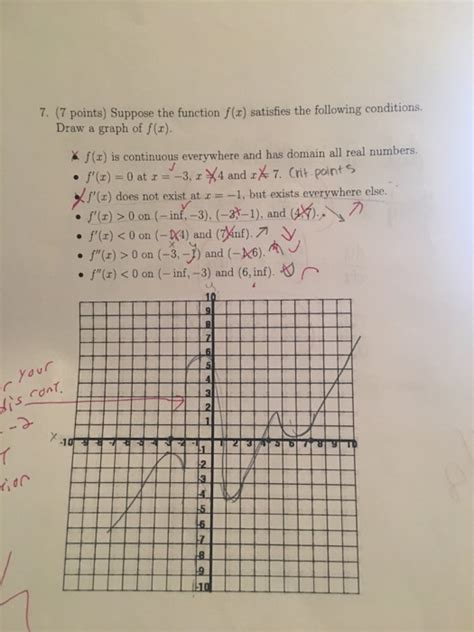 7. (7 points) Suppose the function f(x) satisfies the following conditions.
Draw a graph of f(x).
f(x) is continuous everywhere and has domain all real numbers.
• f'(x) = 0 at x = -3, x = 4 and x = 7. Crit points
f'(x) does not exist at x = -1, but exists everywhere else.
• f'(x) > 0 on (- inf, -3), (-3, -1), and (4, 7).
• f'(x) < 0 on (-1, 4) and (7, inf).
• f''(x) > 0 on (-3, -1) and (-1, 6).
• f''(x) < 0 on (- inf, -3) and (6, inf).
y
10
9
8
7
6
5
4
3
2
1
x -10 -9 -8 -7 -6 -5 -4 -3 -2 1 2 3 4 5 6 7 8 9 10
-1
-2
-3
-4
-5
-6
-7
-8
-9
-10
your
discont.
-2